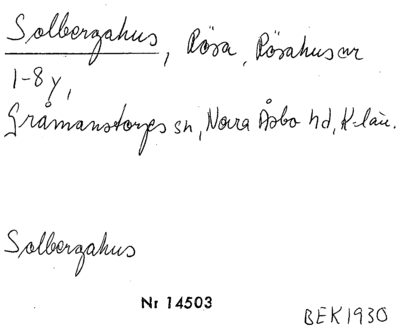 Solbergahus, Rösa, Rösahusar
1-8 y,
Gråmanstorps sn, Norra Åsbo hd, K-län.
Solbergahus
Nr 14503
BEK 1930